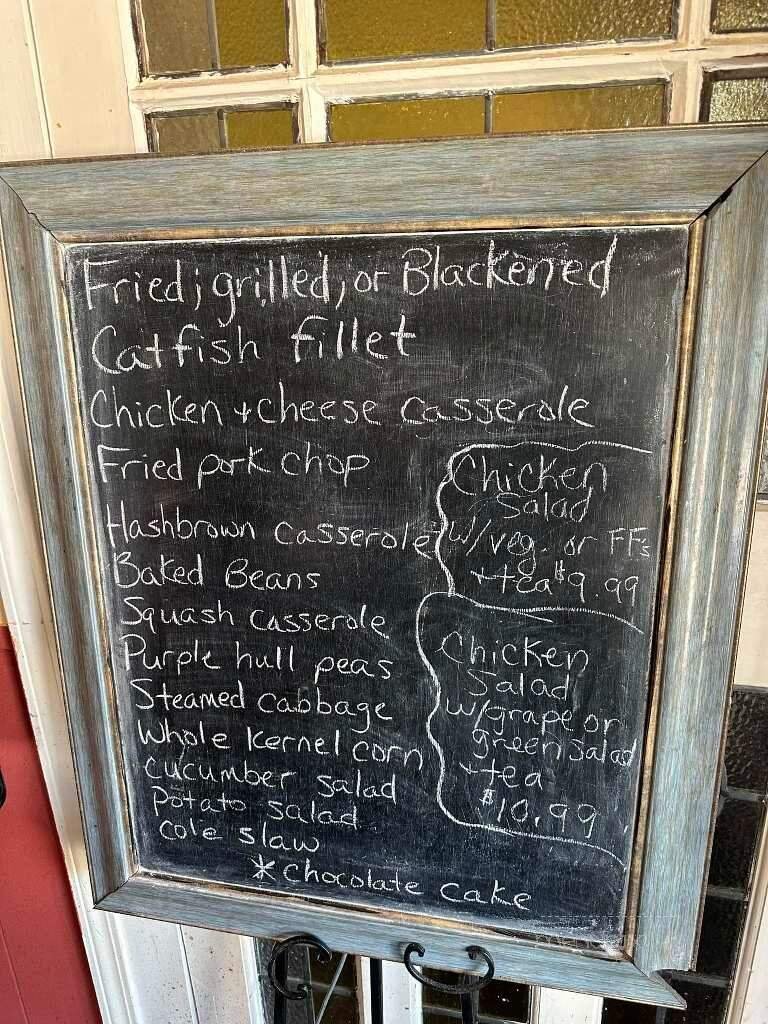 Fried, grilled, or Blackened
Catfish fillet
Chicken + cheese casserole
Fried pork chop
Hashbrown casserole
Baked Beans
Squash casserole
Purple hull peas
Steamed cabbage
Whole kernel corn
cucumber salad
potato salad
cole slaw
*chocolate cake
Chicken
Salad
w/veg. or FF's
+ tea $9.99
Chicken
Salad
w/grape or
green salad
+ tea
$10.99